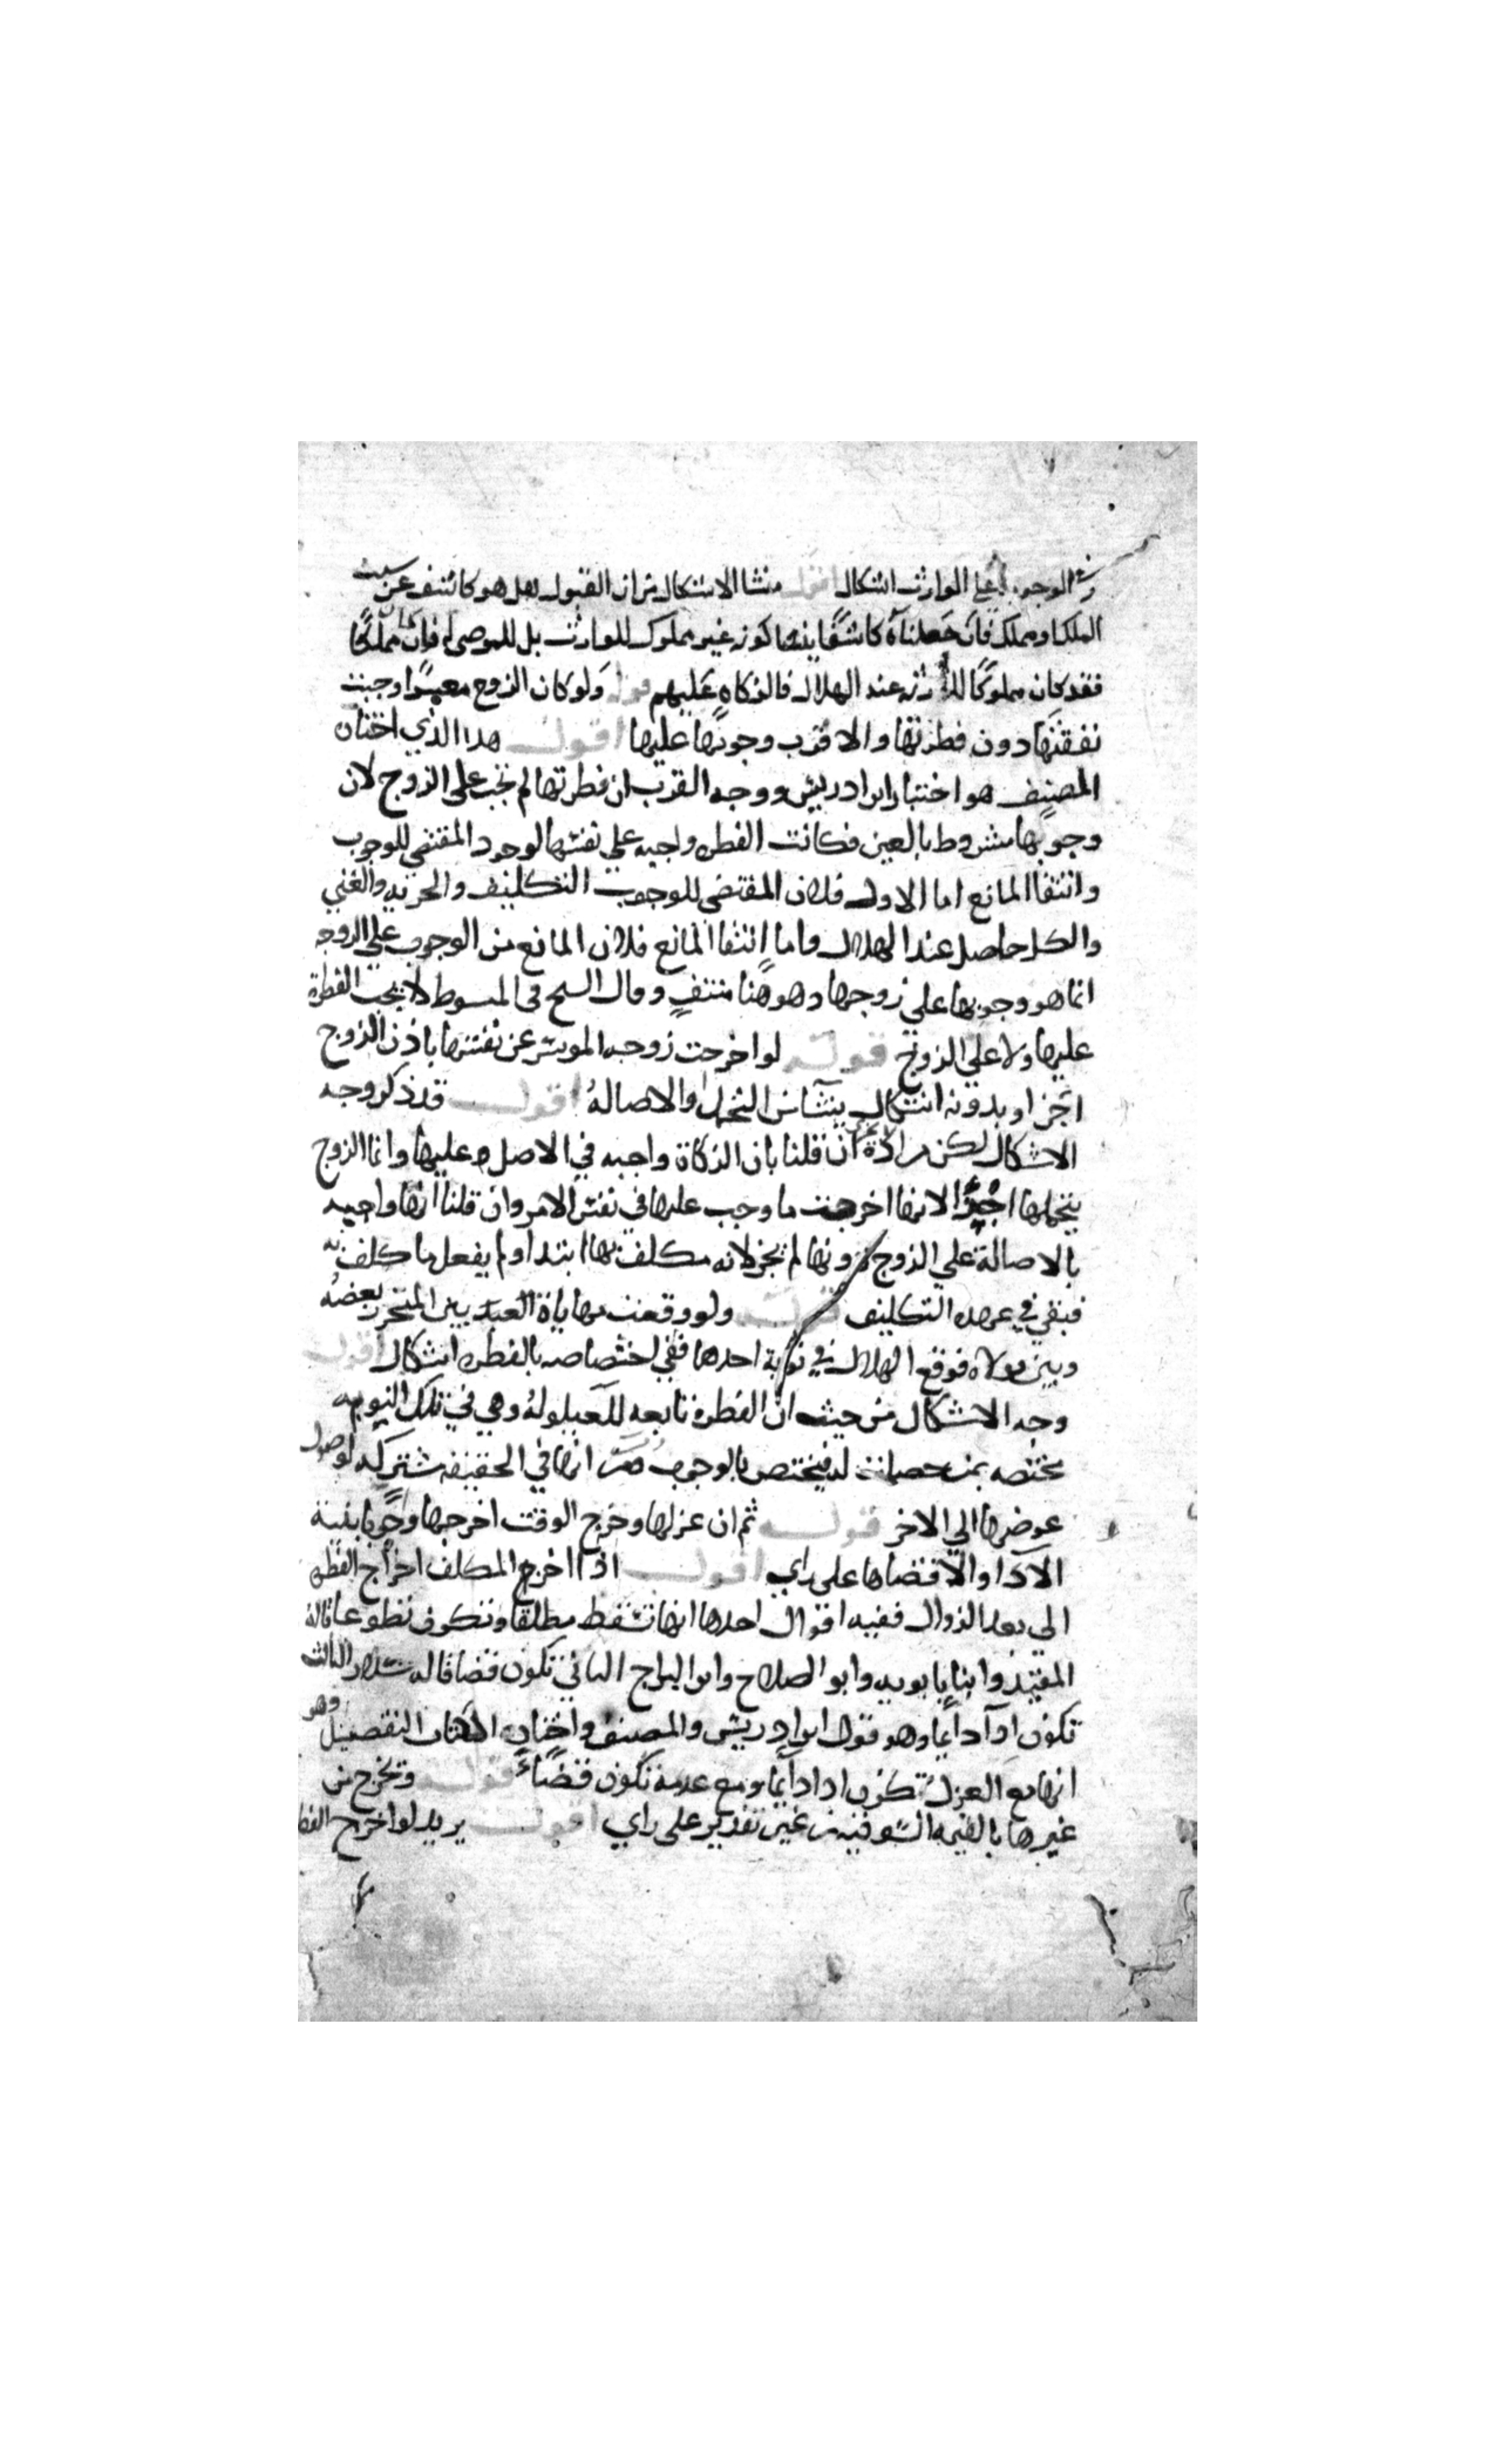 في الوجوب على الوارث اشكال اقول منشا الاشكال من ان القبول هل هو كاشف عن سبق
الملك او مملك فان جعلناه كاشفا بينا كونه غير مملوك للوارث بل للموصى له فان كان مملكا
فقد كان مملوكا للورثة عند الهلال فالزكاه عليهم قوله ولو كان الزوج معسرا وجبت
نفقتها دون فطرتها والاقرب وجوبها عليها اقول هذا الذي اختاره
المصنف هو اختيار ابن ادريس ووجه القرب ان فطرتها لم تجب على الزوج لان
وجوبها مشروط بالعين فكانت الفطره واجبه على نفسها لوجود المقتضي للوجوب
وانتفا المانع اما الاول فلان المقتضى للوجوب التكليف والحريه والغني
والكل حاصل عند الهلال واما انتفا المانع فلان المانع من الوجوب على الزوجه
انما هو وجوبها على زوجها وهو هنا منتف وقال الشيخ في المبسوط لا يجب الفطرة
عليها ولا على الزوج قوله لو اخرجت زوجه الموسر عن نفسها باذن الزوج
اجزا وبدونه اشكال ينشا من التحمل والاصالة اقول قد ذكر وجه
الاشكال لكن مراده ان قلنا بان الزكاة واجبه في الاصل عليها وانما الزوج
يتحملها اجزا لانها اخرجت ما وجب عليها في نفس الامر وان قلنا انها واجبه
بالاصالة على الزوج دونها لم يجز لانه مكلف بها ابتدا ولم يفعل ما كلف به
فبقي في عهده التكليف قوله ولو وقعت مهاياة العبد بين المتحرر بعضه
وبين مولاه فوقع الهلال في نوبة احدهما ففي اختصاصه بالفطره اشكال اقول
وجه الاشكال من حيث ان الفطره تابعه للعيلولة وهي في تلك النوبه
مختصه بمن حصلت له فيختص بالوجوب ومن انها في الحقيقه مشتركه لوصول
عوضها الى الاخر قوله ثم ان عزلها وخرج الوقت اخرجها وجوبا بنية
الادا والا قضاها على راي اقول اذا اخرج المكلف اخراج الفطره
الى بعد الزوال ففيه اقوال احدها انها تسقط مطلقا وتكون تطوعا قاله
المفيد وابنا بابويه وابو الصلاح وابن البراج الثاني تكون قضا قاله سلار الثالث
تكون ادآ دايما وهو قول ابن ادريس والمصنف واختار هنا التفصيل وهو
انها مع العزل تكون ادا دايما ومع عدمه تكون قضاء قوله وتخرج من
غيرها بالقيمه السوقيه من غير تقدير على راي اقول يريد لو اخرج الفط